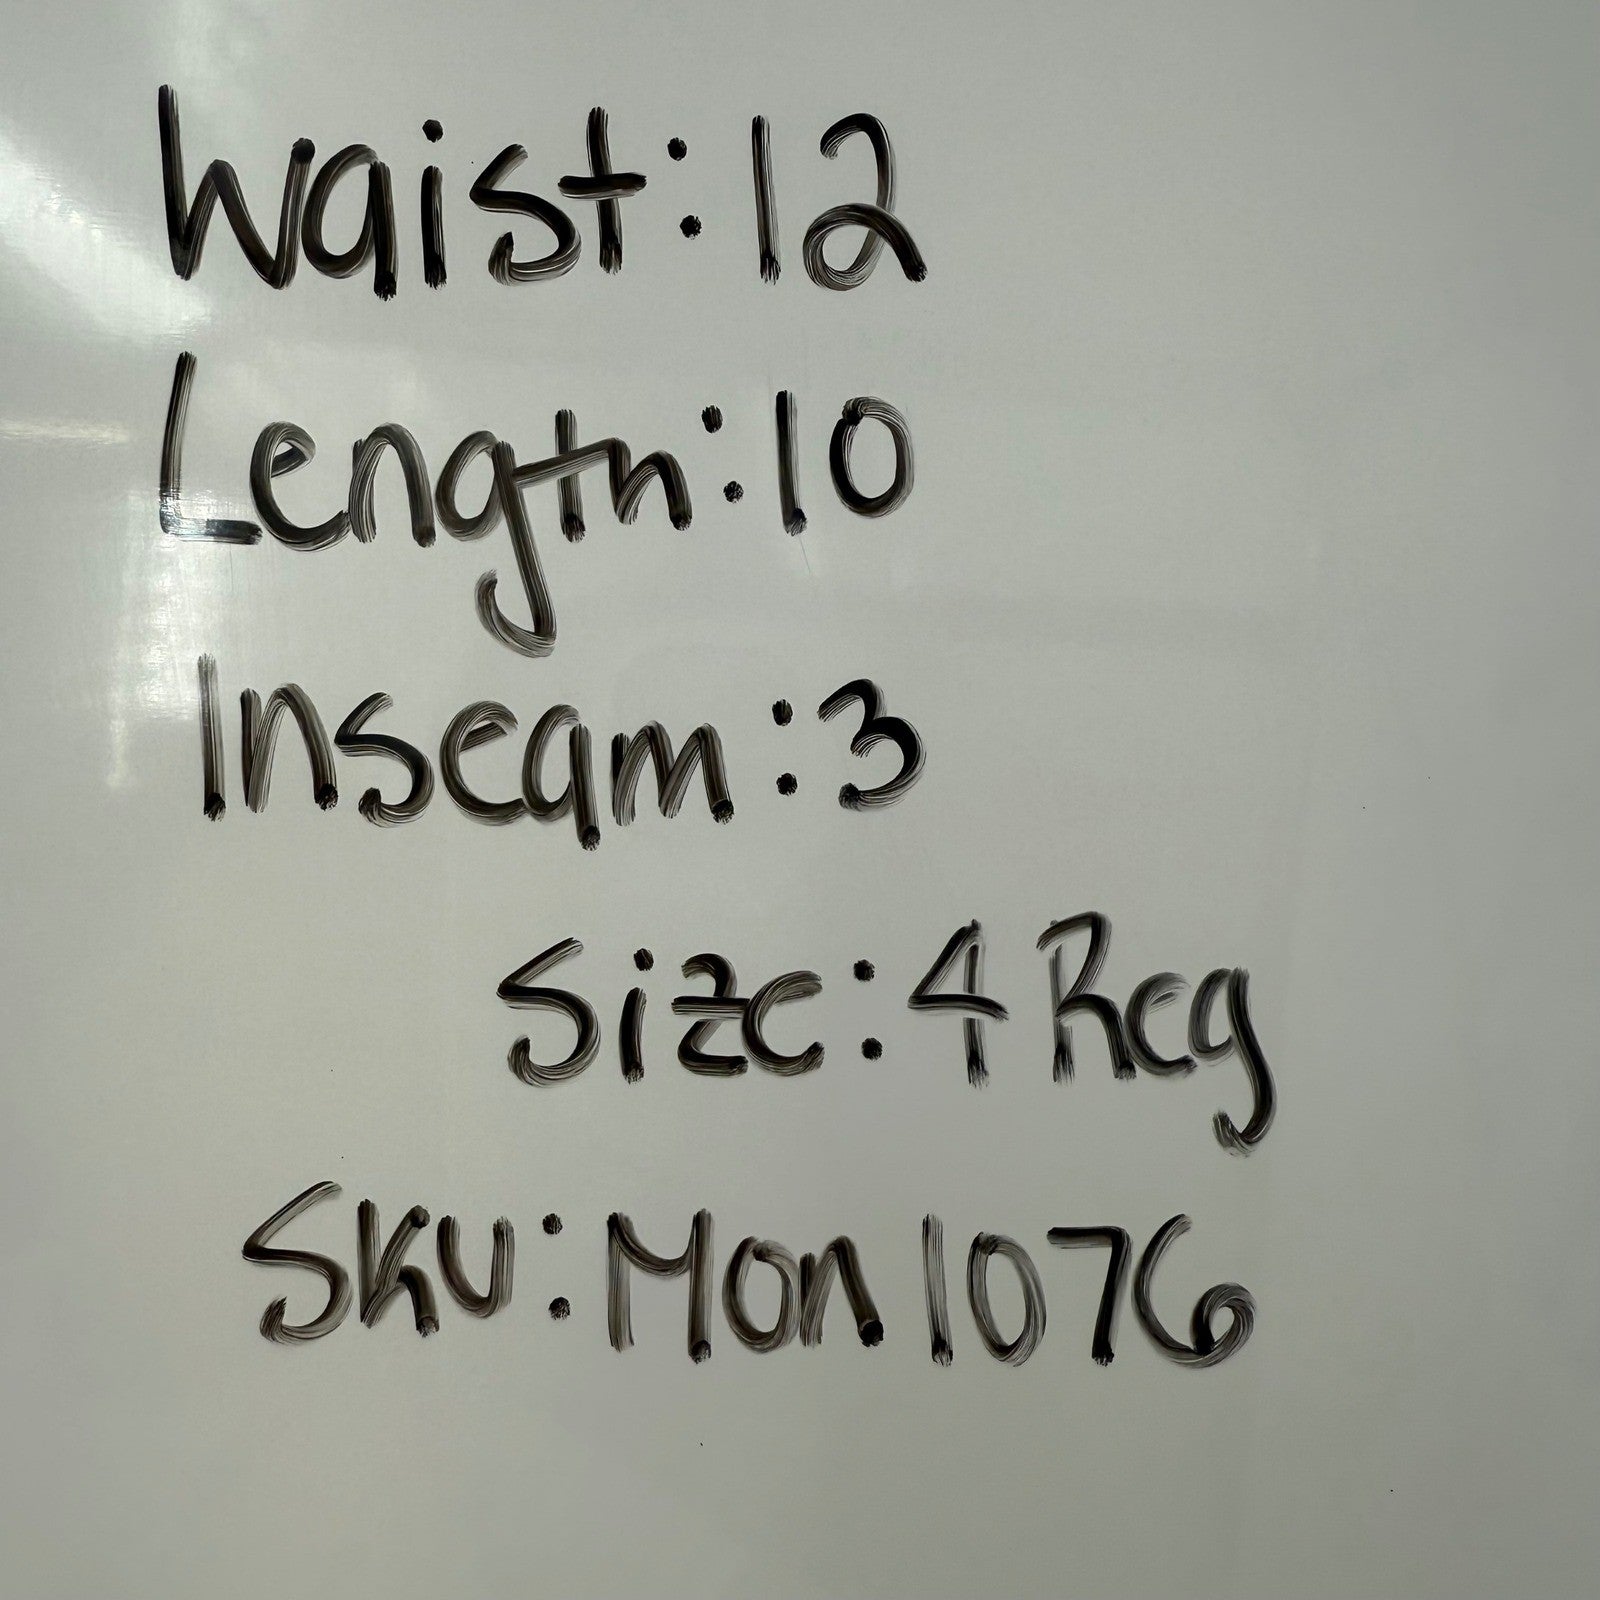 Waist: 12
Length: 10
Inseam: 3
Size: 4 Reg
SKU: Mon 1076